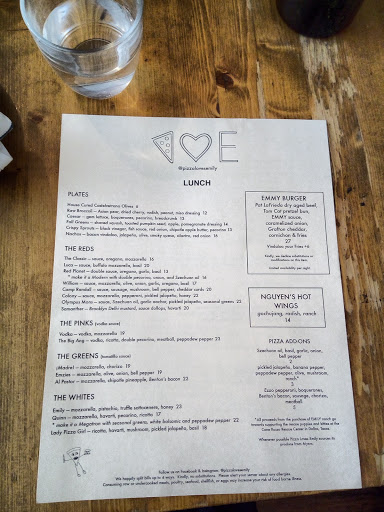 E
@pizzalovesemily
LUNCH
PLATES
House Cured Castelvetrano Olives 6
Raw Broccoli – Asian pear, dried cherry, radish, peanut, miso dressing 12
Caesar – gem lettuce, boquerones, pecorino, breadcrumb 13
Fall Greens – shaved squash, toasted pumpkin seed, apple, pomegranate dressing 14
Crispy Sprouts – black vinegar, fish sauce, red onion, chipotle apple butter, pecorino 13
Nachos – bacon vindaloo, jalapeño, olive, smoky queso, cilantro, red onion 16
THE REDS
The Classic – sauce, oregano, mozzarella 16
Luca – sauce, buffalo mozzarella, basil 20
Red Planet – double sauce, oregano, garlic, basil 13
* make it a Modern with double pecorino, onion, and Szechuan oil 16
William – sauce, mozzarella, olive, onion, garlic, oregano, basil 17
Camp Randall – sauce, sausage, mushroom, bell pepper, cheddar curds 20
Colony – sauce, mozzarella, pepperoni, pickled jalapeño, honey 22
Olympus Mons – sauce, Szechuan oil, garlic anchor, pickled jalapeño, seasonal greens 23
Samanther – Brooklyn Delhi mustard, sauce dollops, havarti 20
THE PINKS (vodka sauce)
Vodka – vodka, mozzarella 19
The Big Ang – vodka, ricotta, double pecorino, meatball, peppadew pepper 23
THE GREENS (tomatillo sauce)
¡Madre! – mozzarella, chorizo 19
Enraizo – mozzarella, olive, onion, bell pepper 19
Al Pastor – mozzarella, chipotle pineapple, Benton's bacon 23
THE WHITES
Emily – mozzarella, pistachio, truffle sottocenere, honey 23
Quinn – mozzarella, havarti, pecorino, ricotta 17
* make it a Megatron with seasonal greens, white balsamic and peppadew pepper 22
Lady Pizza Girl – ricotta, havarti, mushroom, pickled jalapeño, basil 18
EMMY BURGER
Pat LaFrieda dry aged beef,
Tom Cat pretzel bun,
EMMY sauce,
caramelized onion,
Grafton cheddar,
cornichon & fries
27
Vindaloo your Fries +6
Kindly, we believe substitutions or
modifications to this item.
Limited availability per night.
NGUYEN'S HOT
WINGS
gochujang, radish, ranch
14
PIZZA ADD-ONS
Szechuan oil, basil, garlic, onion,
bell pepper
2
pickled jalapeño, banana pepper,
peppadew pepper, olive, mushroom,
ranch*
3
Ezzo pepperoni, boquerones,
Benton's bacon, sausage, chorizo,
meatball
5
*All proceeds from the purchase of RANCH goes
towards supporting the rescue puppies and kitties at the
Cane Rosso Rescue Center in Dallas, Texas.
Whenever possible Pizza Loves Emily sources its
produce from Myers.
Follow us on Facebook & Instagram @pizzalovesemily
We happily split bills up to 4 ways. Kindly, no substitutions. Please alert your server about any allergies.
Consuming raw or undercooked meats, poultry, seafood, shellfish, or eggs may increase your risk of food borne illness.